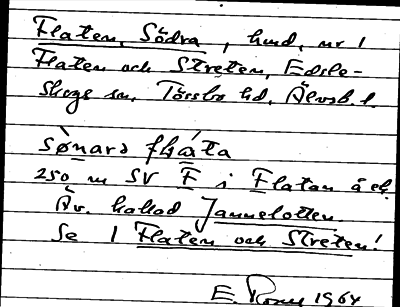 Flaten, Södra, hmd, nr 1
Flaten och Streten, Edsle-
skogs sn, Tössbo hd, Älvsb. l.
sø̀narɜ fḷáta
250 m SV F i Flatan å ek.
Äv. kallad Jannelotten.
Se 1 Flaten och Streten!
E. 1964